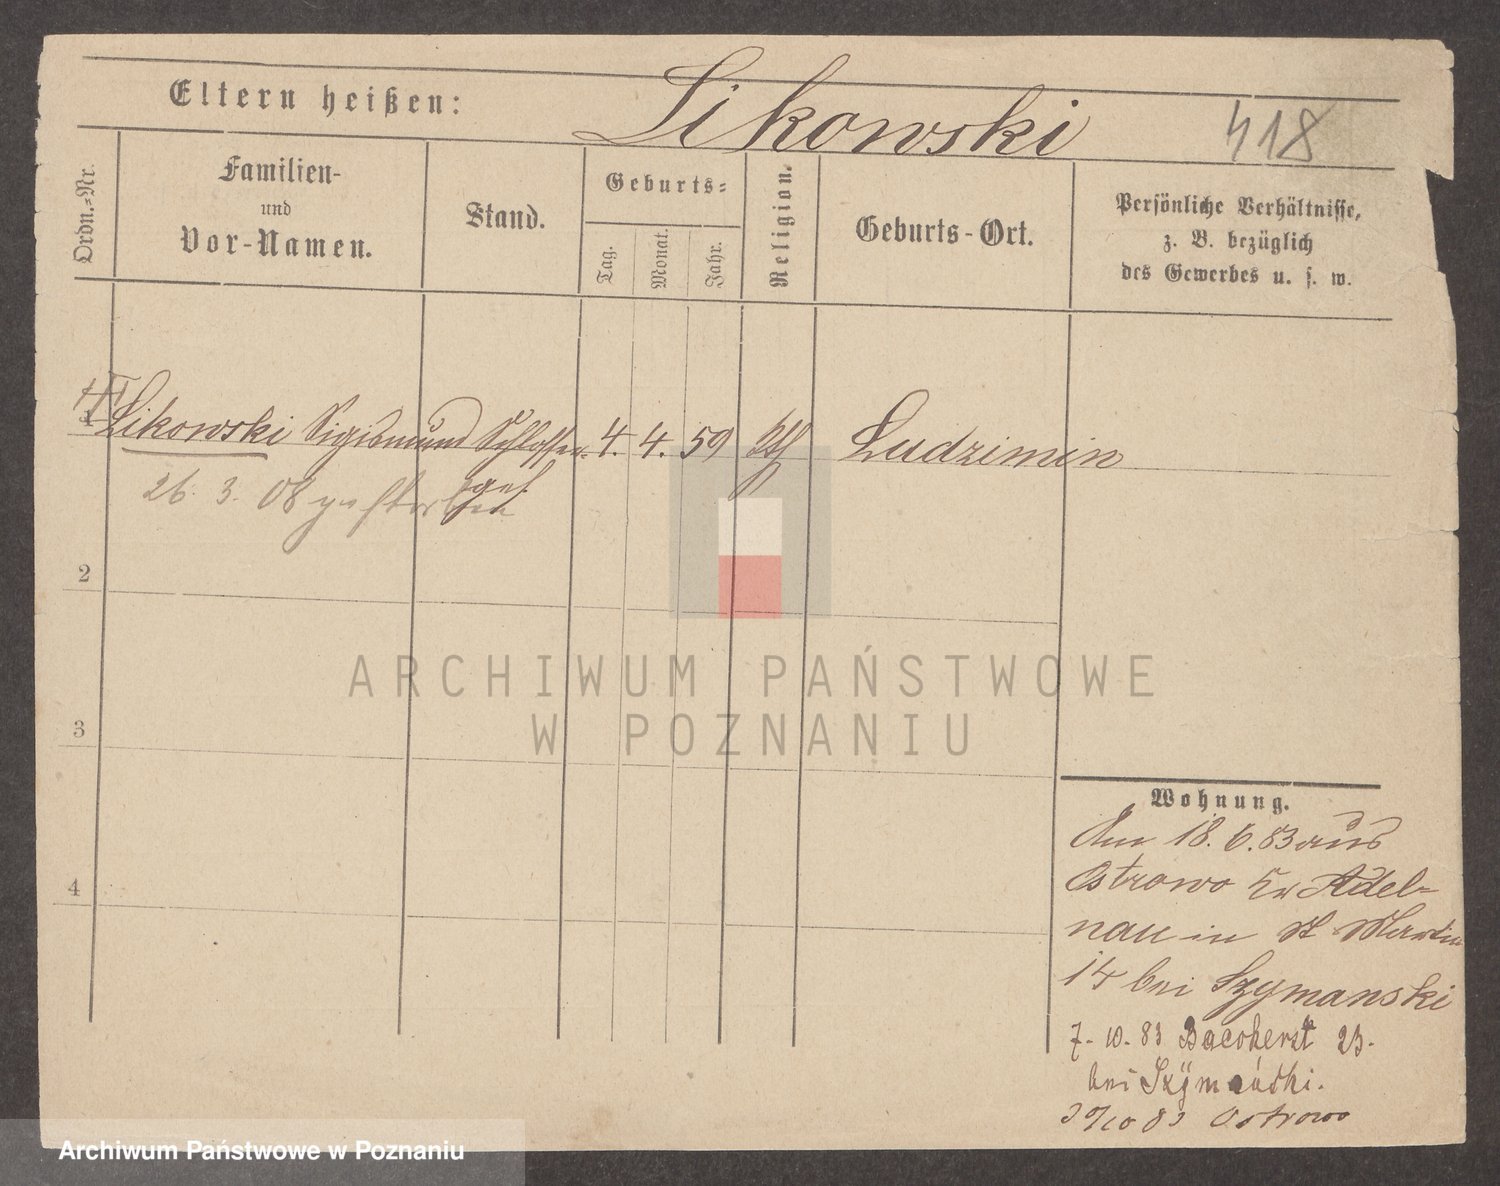 Eltern heißen: Likowski 418
Ordn.-Nr.
Familien-
und
Vor-Namen.
Stand.
Geburts-
Tag.
Monat.
Jahr.
Religion.
Geburts-Ort.
Persönliche Verhältnisse,
z. B. bezüglich
des Gewerbes u. s. w.
1 Likowski Sigismund Schlosser- 4. 4. 59 kth Ludzimin
ges.
26. 3. 08 gestorben
2
3
4
ARCHIWUM PAŃSTWOWE
W POZNANIU
Wohnung.
Am 18. 6. 83 aus
Ostrowo Kr Adel-
nau in St Martin
14 bei Szymanski
7. 10. 83 23.
bei
10 83 Ostrowo
Archiwum Państwowe w Poznaniu